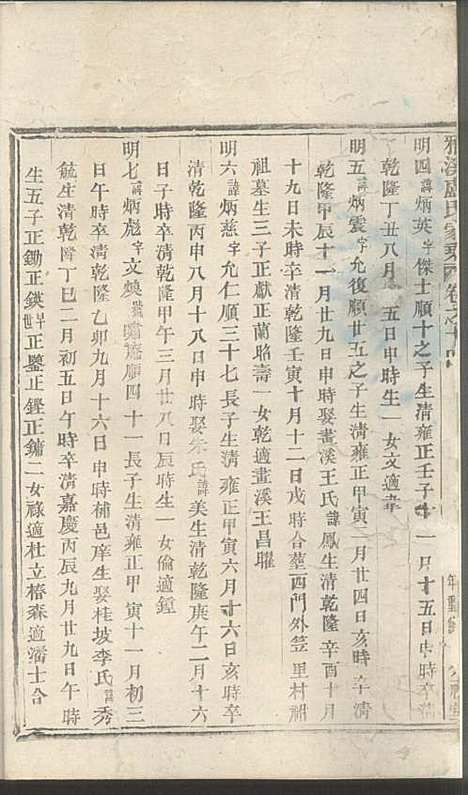 雅溪盧氏家乘卷之十四
明四諱炳英字傑士順十之子生清雍正壬子十一月十五日申時卒清
乾隆丁丑八月 五日申時生一女文適韋
明五諱炳震字允復順廿五之子生清雍正甲寅二月廿四日亥時卒清
乾隆甲辰十一月廿九日申時娶畫溪王氏諱鳳生清乾隆辛酉十月
十九日未時卒清乾隆壬寅十月十二日戌時合塟西門外笠里村祔
祖墓生三子正獻正蘭昭壽一女乾適畫溪王昌曜
明六諱炳慈字允仁順三十七長子生清雍正甲寅六月十六日亥時卒
清乾隆丙申八月十八日申時娶朱氏諱美生清乾隆庚午二月十六
日子時卒清乾隆甲午三月廿八日辰時生一女倫適鍠
明七諱炳彪字文煥號嘯菴順四十一長子生清雍正甲寅十一月初三
日午時卒清乾隆乙卯九月十六日申時補邑庠生娶桂坡李氏諱秀
毓生清乾隆丁巳二月初五日午時卒清嘉慶丙辰九月廿九日午時
生五子正鋤正鍈早世正鑒正鏗正鏞二女祿適杜立椿森適潘士合